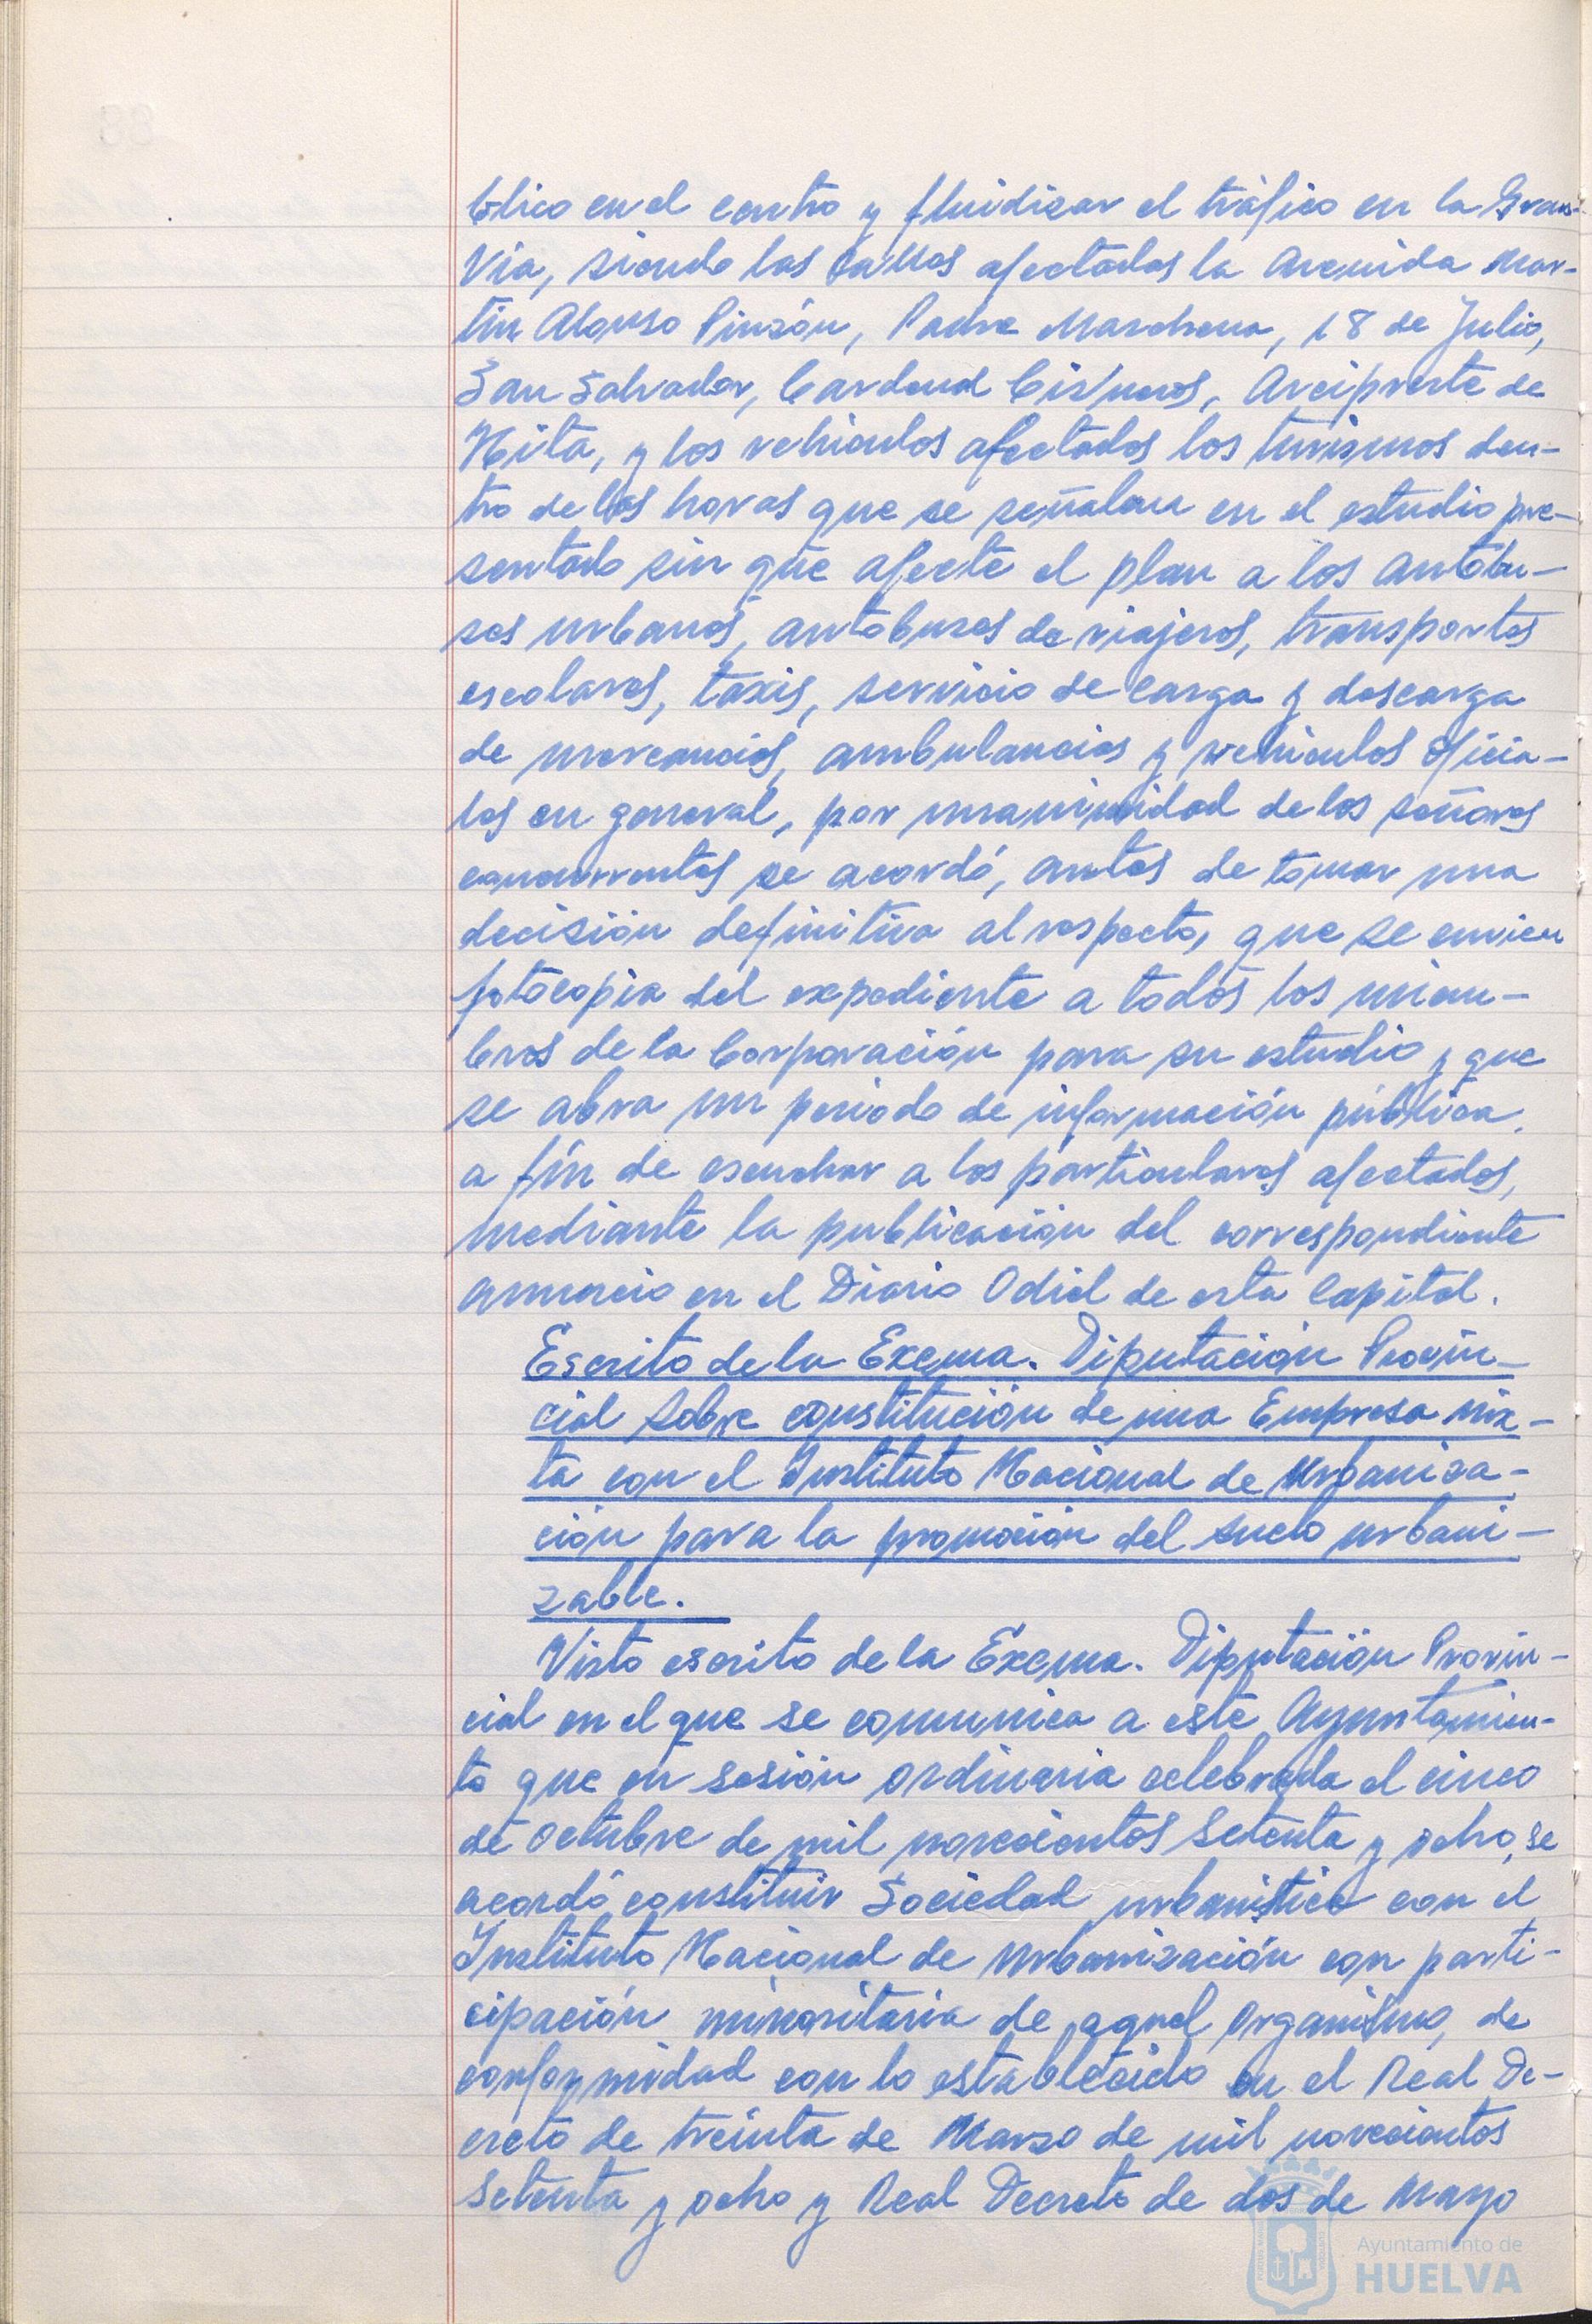 blico en el centro y fluidizar el tráfico en la Gran-
Vía, siendo las calles afectadas la Avenida Mar-
tín Alonso Pinzón, Padre Marchena, 18 de Julio,
San Salvador, Cardenal Cisneros, Arcipreste de
Hita, y los vehiculos afectados los turismos den-
tro de las horas que se señalan en el estudio pre-
sentado sin que afecte el plan a los autobu-
ses urbanos, autobuses de viajeros, transportes
escolares, taxis, servicio de carga y descarga
de mercancias, ambulancias y vehiculos oficia-
les en general, por unanimidad de los señores
concurrentes se acordó, antes de tomar una
decisión definitiva al respecto, que se envien
fotocopia del expediente a todos los miem-
bros de la Corporación para su estudio y que
se abra un periodo de información pública,
a fin de escuchar a los particulares afectados,
mediante la publicación del correspondiente
anuncio en el Diario Odiel de esta Capital.
Escrito de la Excma. Diputación Provin-
cial sobre constitución de una Empresa mix-
ta con el Instituto Nacional de Urbaniza-
ción para la promoción del suelo urbani-
zable.
Visto escrito de la Excma. Diputación Provin-
cial en el que se comunica a este Ayuntamien-
to que en sesión ordinaria celebrada el cinco
de octubre de mil novecientos setenta y ocho, se
acordó constituir Sociedad urbanistica con el
Instituto Nacional de Urbanización con parti-
cipación minoritaria de aquel Organismo, de
conformidad con lo establecido en el Real De-
creto de treinta de Marzo de mil novecientos
setenta y ocho y Real Decreto de dos de Mayo
Ayuntamiento de
HUELVA